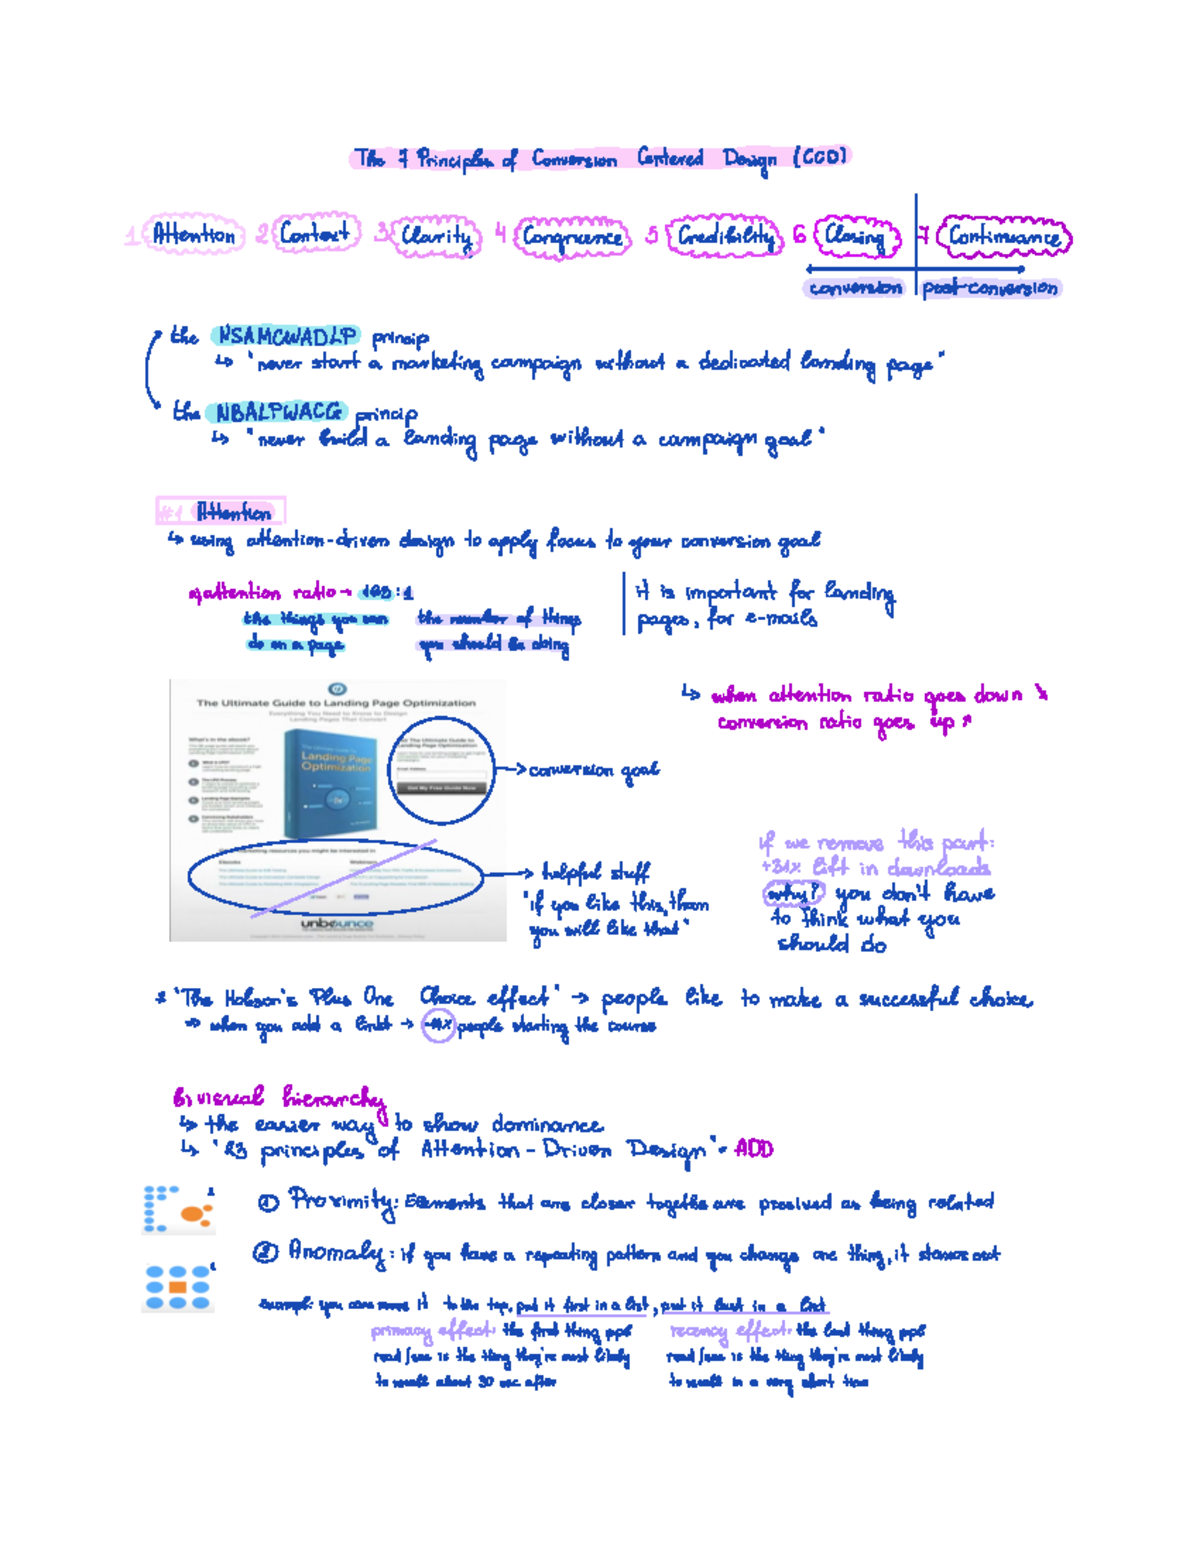 The 7 Principles of Conversion Centered Design (CCD)
1 Attention 2 Context 3 Clarity 4 Congruence 5 Credibility 6 Closing 7 Continuance
conversion post-conversion
the NSAMCWADLP princip
↳ "never start a marketing campaign without a dedicated landing page"
the NBALPWACG princip
↳ "never build a landing page without a campaign goal"
#1 Attention
↳ using attention-driven design to apply focus to your conversion goal
a) attention ratio → :1
the things you can
do on a page
the number of things
you should be doing
it is important for landing
pages, for e-mails
↳ when attention ratio goes down ↘
conversion ratio goes up ↗
The Ultimate Guide to Landing Page Optimization
Everything You Need to Know to Design
Landing Pages That Convert
What's in the ebook?
Landing Page
Optimization
The Ultimate Guide to
Landing Page Optimization
Get My Free Guide Now
→ conversion goal
marketing resources you might be interested in
Ebooks
Webinars
unbounce
→ helpful stuff
"if you like this, then
you will like that"
if we remove this part:
+31% lift in downloads
why? you don't have
to think what you
should do
* "The Hobson's Plus One Choice effect" → people like to make a successful choice
⇒ when you add a link → people starting the course
b) visual hierarchy
↳ the easier way to show dominance
↳ "23 principles of Attention-Driven Design" - ADD
① Proximity: Elements that are closer togethe are as being related
② Anomaly: if you have a repeating pattern and you change one thing, it stands out
example: you can move it to the top, put it first in a list, put it last in a list
primacy effect: the first thing ppl
read/see is the thing they're most likely
to recall about 30 sec after
recency effect: the last thing ppl
read/see is the thing they're most likely
to recall in a very short time